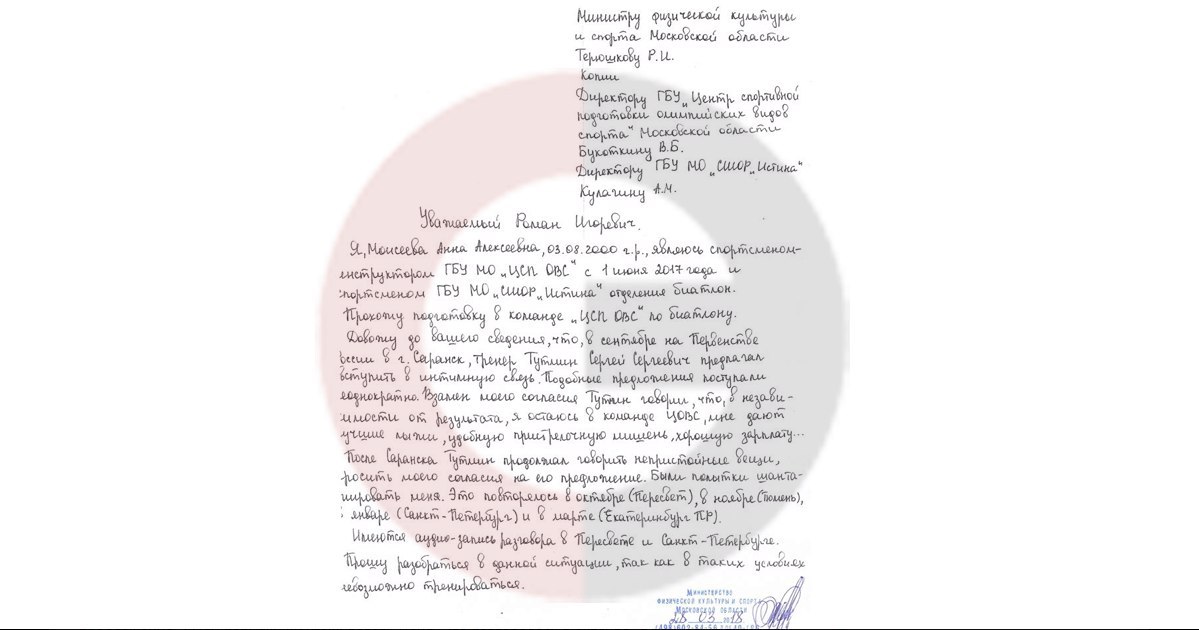 Министру физической культуры
и спорта Московской области
Терюшкову Р.И.
Копии
Директору ГБУ „Центр спортивной
подготовки олимпийских видов
спорта“ Московской области
Букоткину В.Б.
Директору ГБУ МО „СШОР „Истина“
Кулагину А.М.
Уважаемый Роман Игоревич.
Я, Моисеева Анна Алексеевна, 03.08.2000 г.р., являюсь спортсменом-
инструктором ГБУ МО „ЦСП ОВС“ с 1 июня 2017 года и
спортсменом ГБУ МО „СШОР „Истина“ отделения биатлон.
Прохожу подготовку в команде „ЦСП ОВС“ по биатлону.
Довожу до вашего сведения, что, в сентябре на Первенстве
оссии в г. Саранск, тренер Тутмин Сергей Сергеевич предлагал
вступить в интимную связь. Подобные предложения поступали
еоднократно. Взамен моего согласия Тутмин говорил, что, в незави-
имости от результата, я остаюсь в команде ЦОВС, мне дают
учшие лыжи, удобную пристрелочную мишень, хорошую зарплату...
После Саранска Тутмин продолжал говорить непристойные вещи,
росить моего согласия на его предложение. Были попытки шанта-
ировать меня. Это повторялось в октябре (Пересвет), в ноябре (Тюмень),
январе (Санкт-Петербург) и в марте (Екатеринбург ПР).
Имеются аудио-запись разговора в Пересвете и Санкт-Петербурге.
Прошу разобраться в данной ситуации, так как в таких условиях
евозможно тренироваться.
Министерство
физической культуры и спорта
Московской области
28 03 18